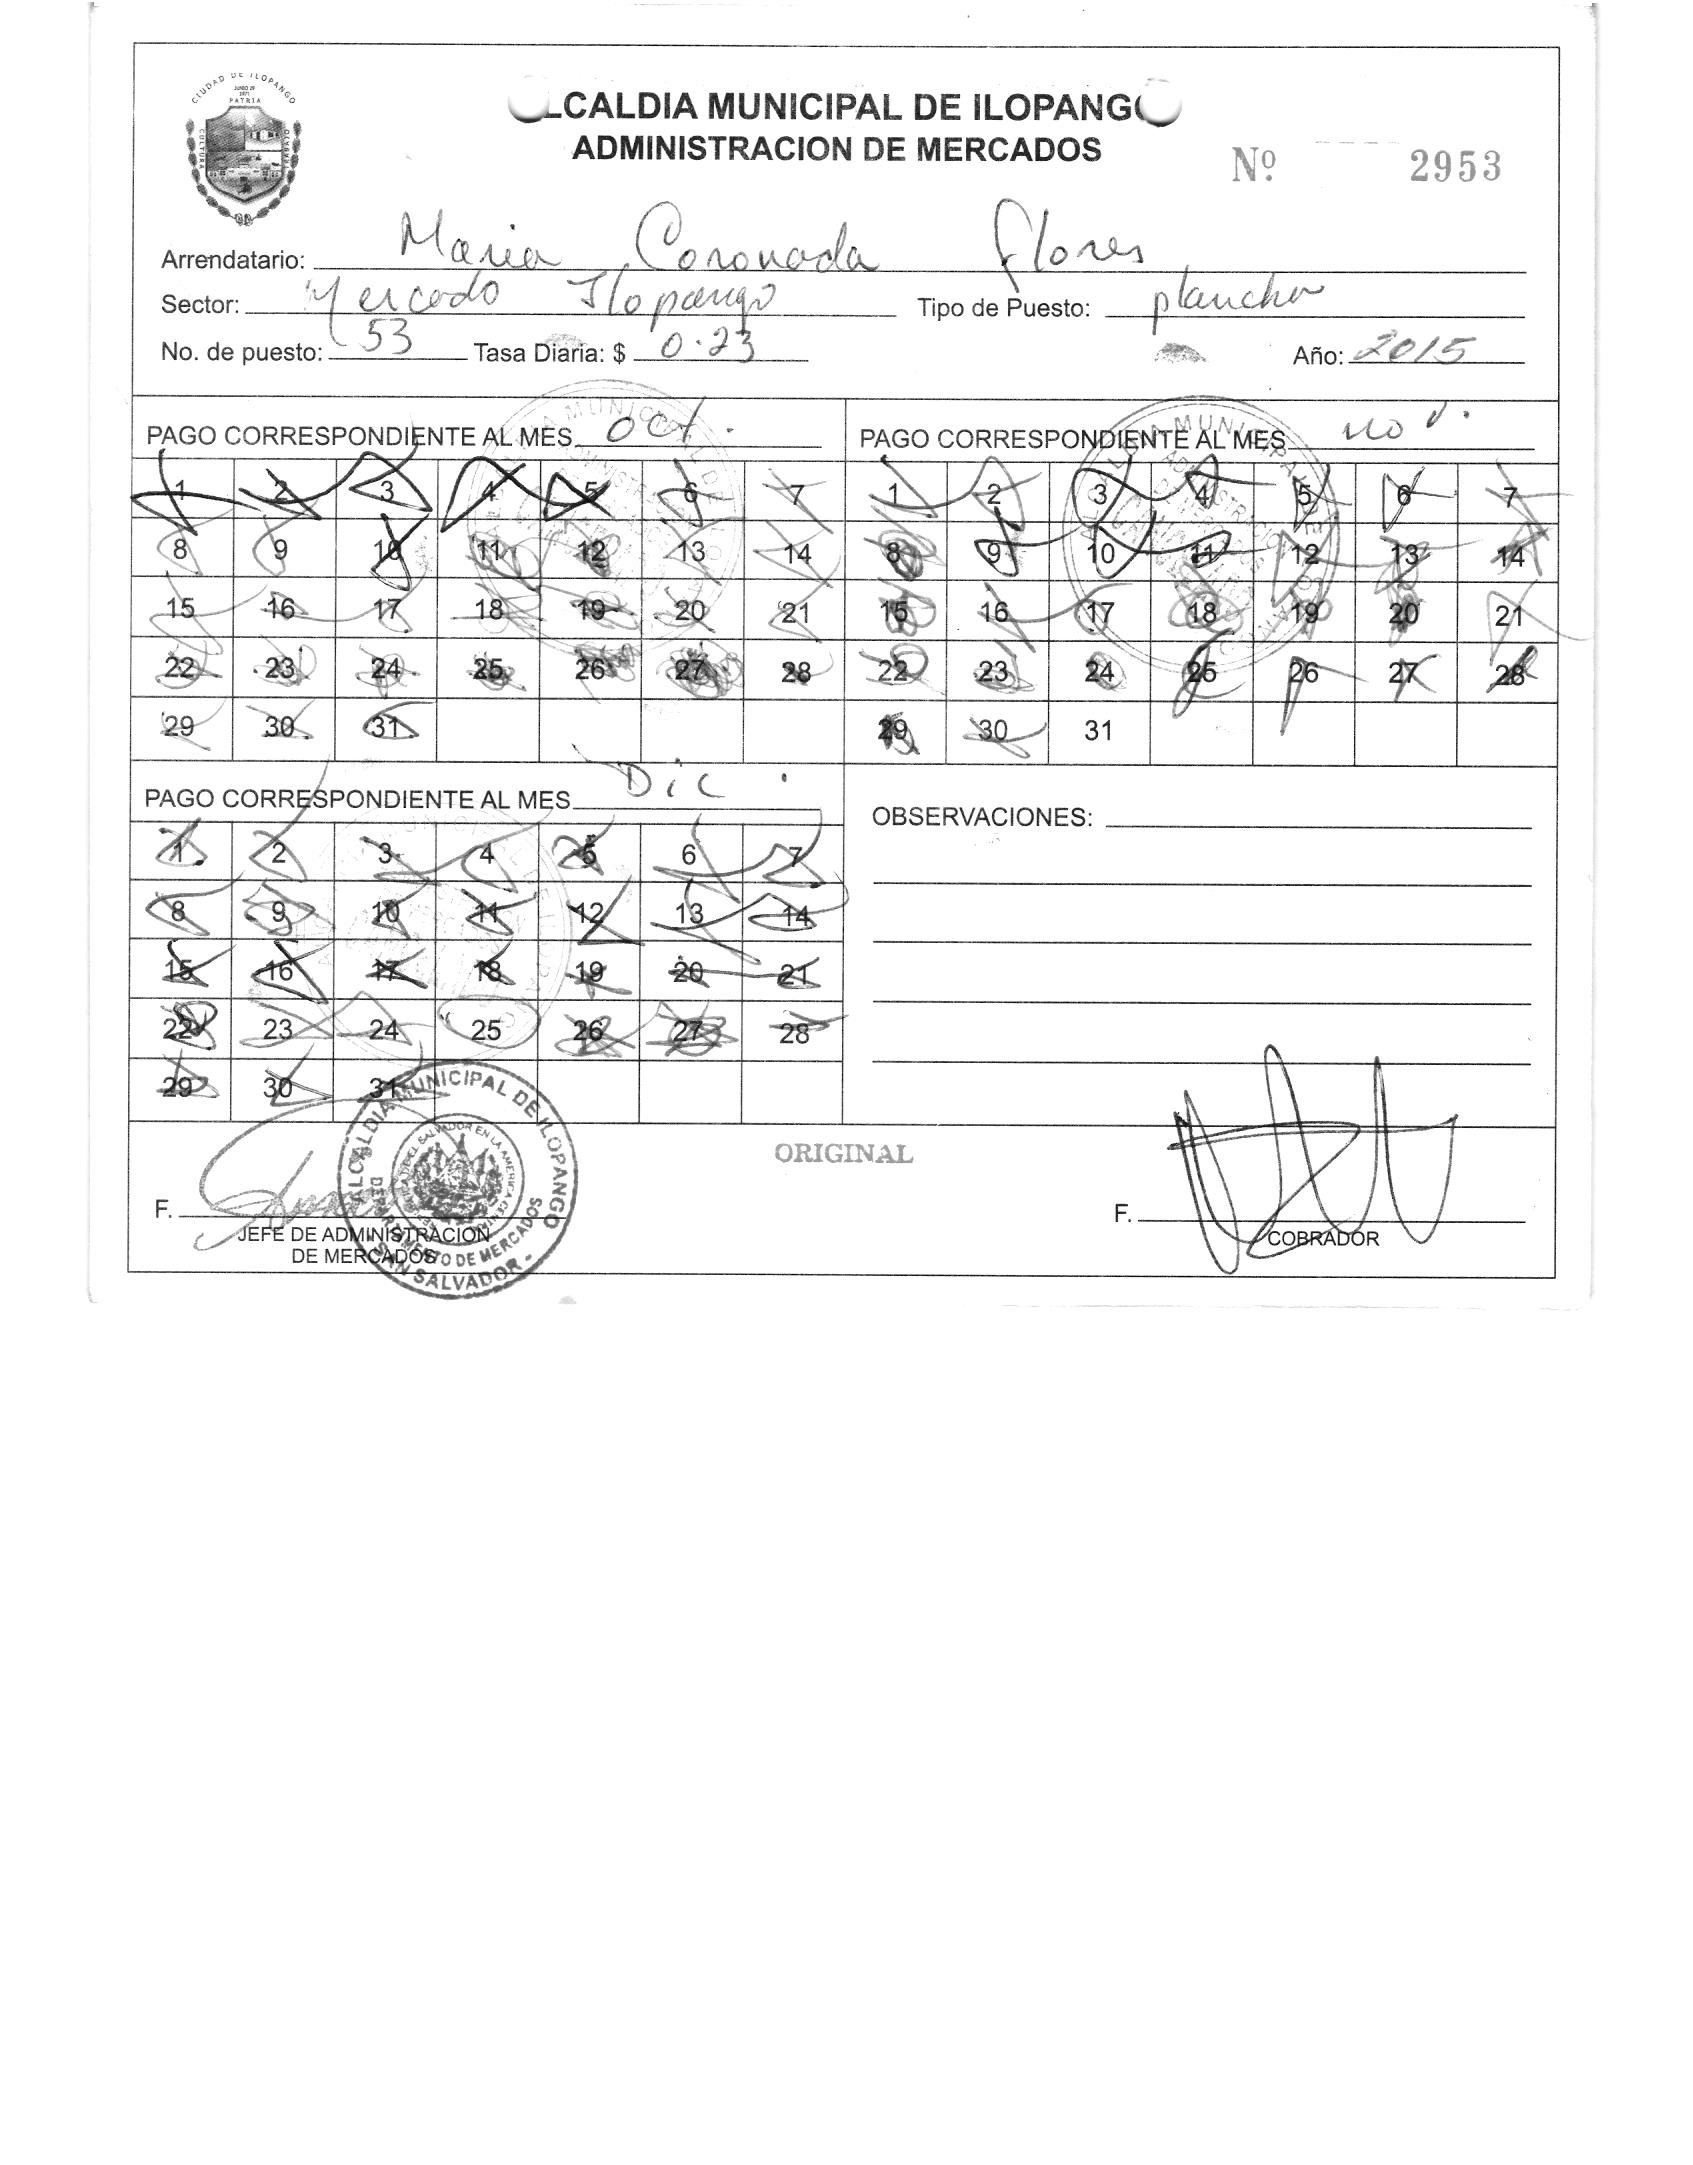 CIUDAD DE ILOPANGO
JUNIO 29
1971
PATRIA
CULTURA
LCALDIA MUNICIPAL DE ILOPANGO
ADMINISTRACION DE MERCADOS
Nº 2953
Arrendatario: Maria Coronada Flores
Sector: Mercado Ilopango Tipo de Puesto: plancha
No. de puesto: 53 Tasa Diaria: $ 0.23 Año: 2015
PAGO CORRESPONDIENTE AL MES Oct. PAGO CORRESPONDIENTE AL MES nov.
1 2 3 4 5 6 7 1 2 3 4 5 6 7
8 9 10 11 12 13 14 8 9 10 11 12 13 14
15 16 17 18 19 20 21 15 16 17 18 19 20 21
22 23 24 25 26 27 28 22 23 24 25 26 27 28
29 30 31 29 30 31
PAGO CORRESPONDIENTE AL MES Dic. OBSERVACIONES:
1 2 3 4 5 6 7
8 9 10 11 12 13 14
15 16 17 18 19 20 21
22 23 24 25 26 27 28
29 30 31
ALCALDIA MUNICIPAL DE ILOPANGO
DEPARTAMENTO DE MERCADOS
SAN SALVADOR
ORIGINAL
F. F.
JEFE DE ADMINISTRACION COBRADOR
DE MERCADOS